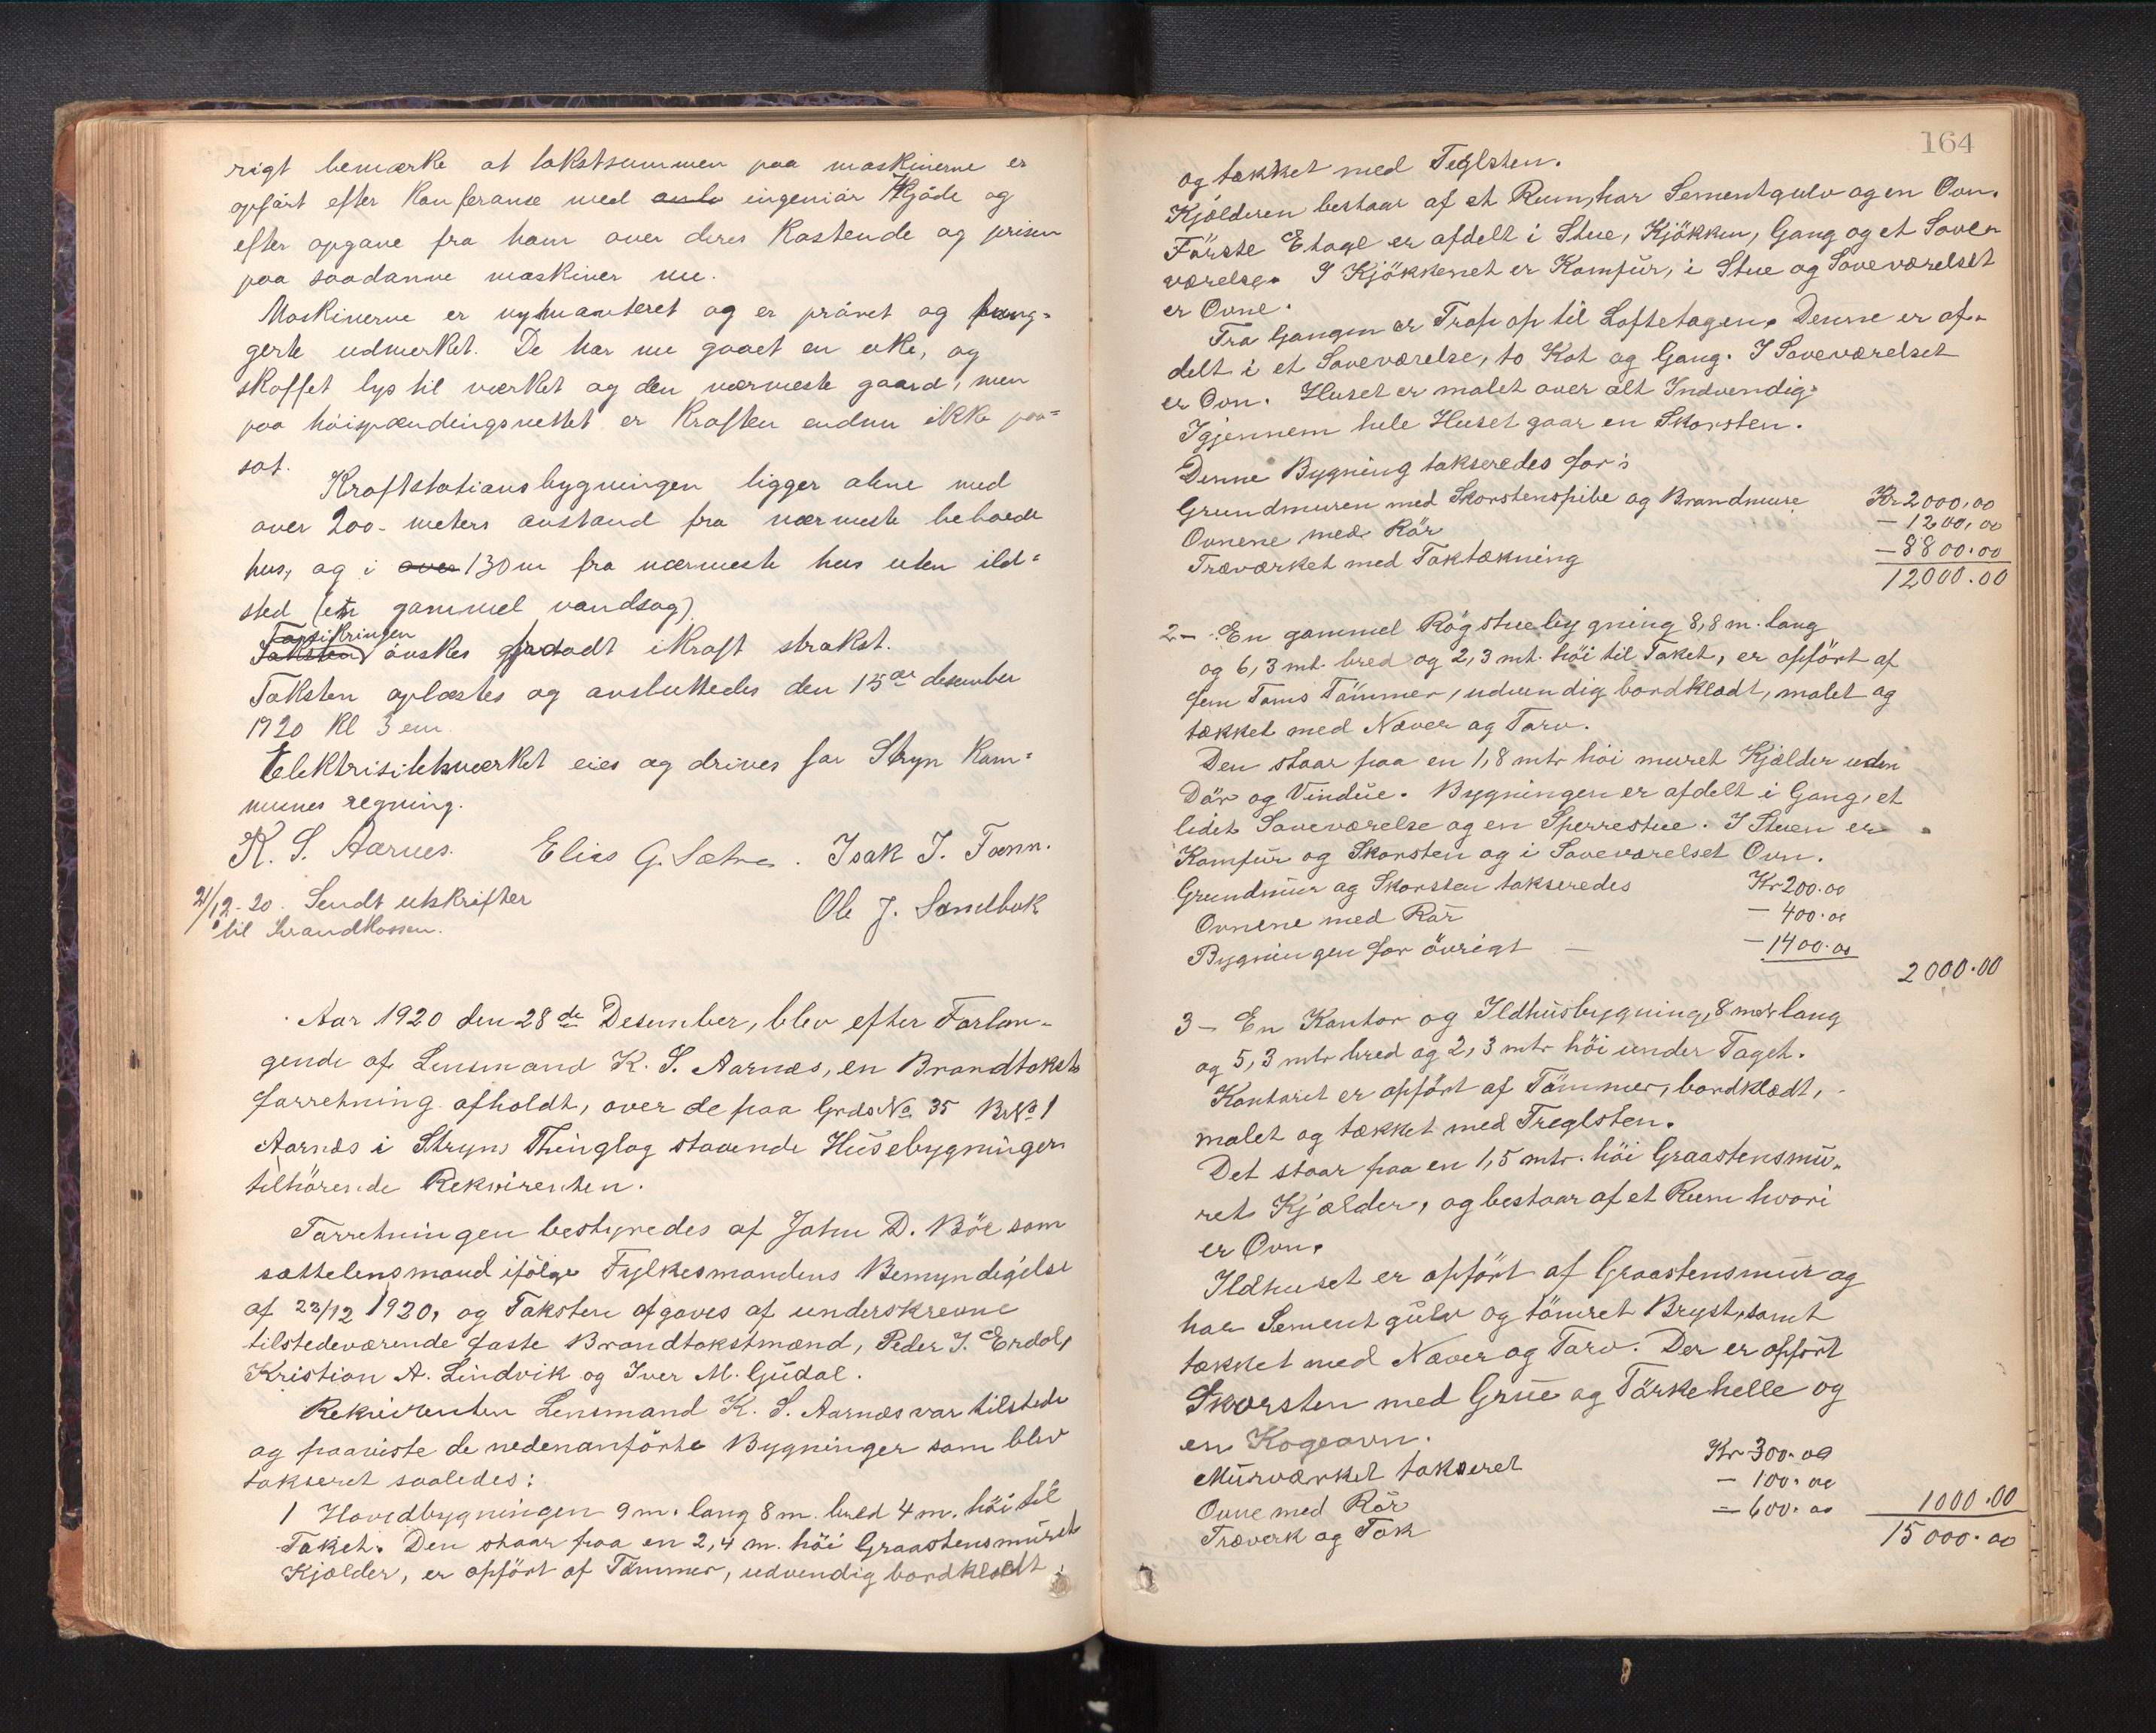 rigt bemærke at takstsummen paa maskinerne er
opført efter konferanse med ingeniør Kjøde og
efter opgave fra ham over deres kostende og prisen
paa saadanne maskiner nu.
Maskinerne er nymonteret og er prøvet og fung=
gerte udmerket. De har nu gaaet en uke, og
skaffet lys til værket og den nærmeste gaard, men
paa høispændingsnettet er kraften endnu ikke paa=
sat.
Kraftstationsbygningen ligger alene med
over 200 - meters avstand fra nærmeste beboede
hus, og i over 130 m fra nærmeste hus uten ild=
sted (en gammel vandsag)
Forsikringen
Taksten ønskes godtat ikraft strakst.
Taksten oplæstes og avsluttedes den 15de desember
1920 kl 3 em.
Elektrisitetsværket eies og drives for Stryn kom=
munes regning.
K. S. Aarnes. Elias G. Sætre. Isak J. Tonn.
21/12-20. Sendt utskrifter
til brandkassen.
Ole J. Sandbak
Aar 1920 den 28de Desember, blev efter Forlan-
gende af Lensmand K. S. Aarnæs, en Brandtakst
forretning afholdt, over de paa Grds No 35 BrNo 1
Aarnæs i Stryns Thinglag staaende Husebygninger
tilhørende Rekvirenten.
Forretningen bestyredes af John D. Böe som
sættelensmand ifölge Fylkesmandens Bemyndigelse
af 22/12 1920, og Taksten afgaves af underskrevne
tilstedeværende faste Brandtakstmænd, Peder J. Erdal,
Kristian A. Lindvik og Iver M. Gudal.
Rekvirenten Lensmand K. S. Aarnæs var tilstede
og paaviste de nedenanförte Bygninger som blev
takseret saaledes:
1 Hovedbygningen 9 m. lang 8 m. bred 4 m. höi til
Taket. Den staar paa en 2,4 m. höi Graastensmuret
Kjælder, er opfört af Tömmer, udvendig bordklædt
164
og tækket med Teglsten.
Kjælderen bestaar af et Rum, har Sementgulv og en Ovn.
Förste Etage er afdelt i Stue, Kjökken, Gang og et Sove-
værelse. I Kjökkenet er Komfur, i Stue og Soveværelset
er Ovne.
Fra Gangen er Trap op til Loftetagen. Denne er af-
delt i et Soveværelse, to Kot og Gang. I Soveværelset
er Ovn. Huset er malet over alt Indvendig.
Igjennem hele Huset gaar en Skorsten.
Denne Bygning takseredes for:
Grundmuren med Skorstenspibe og Brandmure Kr 2000,00
Ovnene med Rör - 1200,00
Træværket med Taktækning - 8800.00
12000.00
2- En gammel Rögstuebygning 8,8 m. lang
og 6,3 mt. bred og 2,3 mt. höi til Taket, er opfört af
fem Toms Tömmer, udvendig bordklædt, malet og
tækket med Næver og Torv.
Den staar paa en 1,8 mtr höi muret Kjælder uden
Dör og Vindue. Bygningen er afdelt i Gang, et
lidet Soveværelse og en Sperrestue. I Stuen er
Komfur og Skorsten og i Soveværelset Ovn.
Grundmur og Skorsten takseredes Kr 200.00
Ovnene med Rör - 400.00
Bygningen for övrigt - - 1400.00
2000.00
3- En Kontor og Ildhusbygning, 8 mtr lang
og 5,3 mtr bred og 2,3 mtr höi under Taget.
Kontoret er opfört af Tömmer, bordklædt,
malet og tækket med Treglsten.
Det staar paa en 1,5 mtr. höi Graastensmu-
ret Kjælder, og bestaar af et Rum hvori
er Ovn.
Ildhuset er opfört af Graastensmur og
har Sement gulv og tömret Bryst, samt
tækket med Næver og Torv. Der er opfört
Skorsten med Grue og Törkehelle og
en Kogeovn.
Murværket takseret Kr 300.00
Ovne med Rör - 100.00
Træverk og Tak - 600.00 1000.00
15000.00